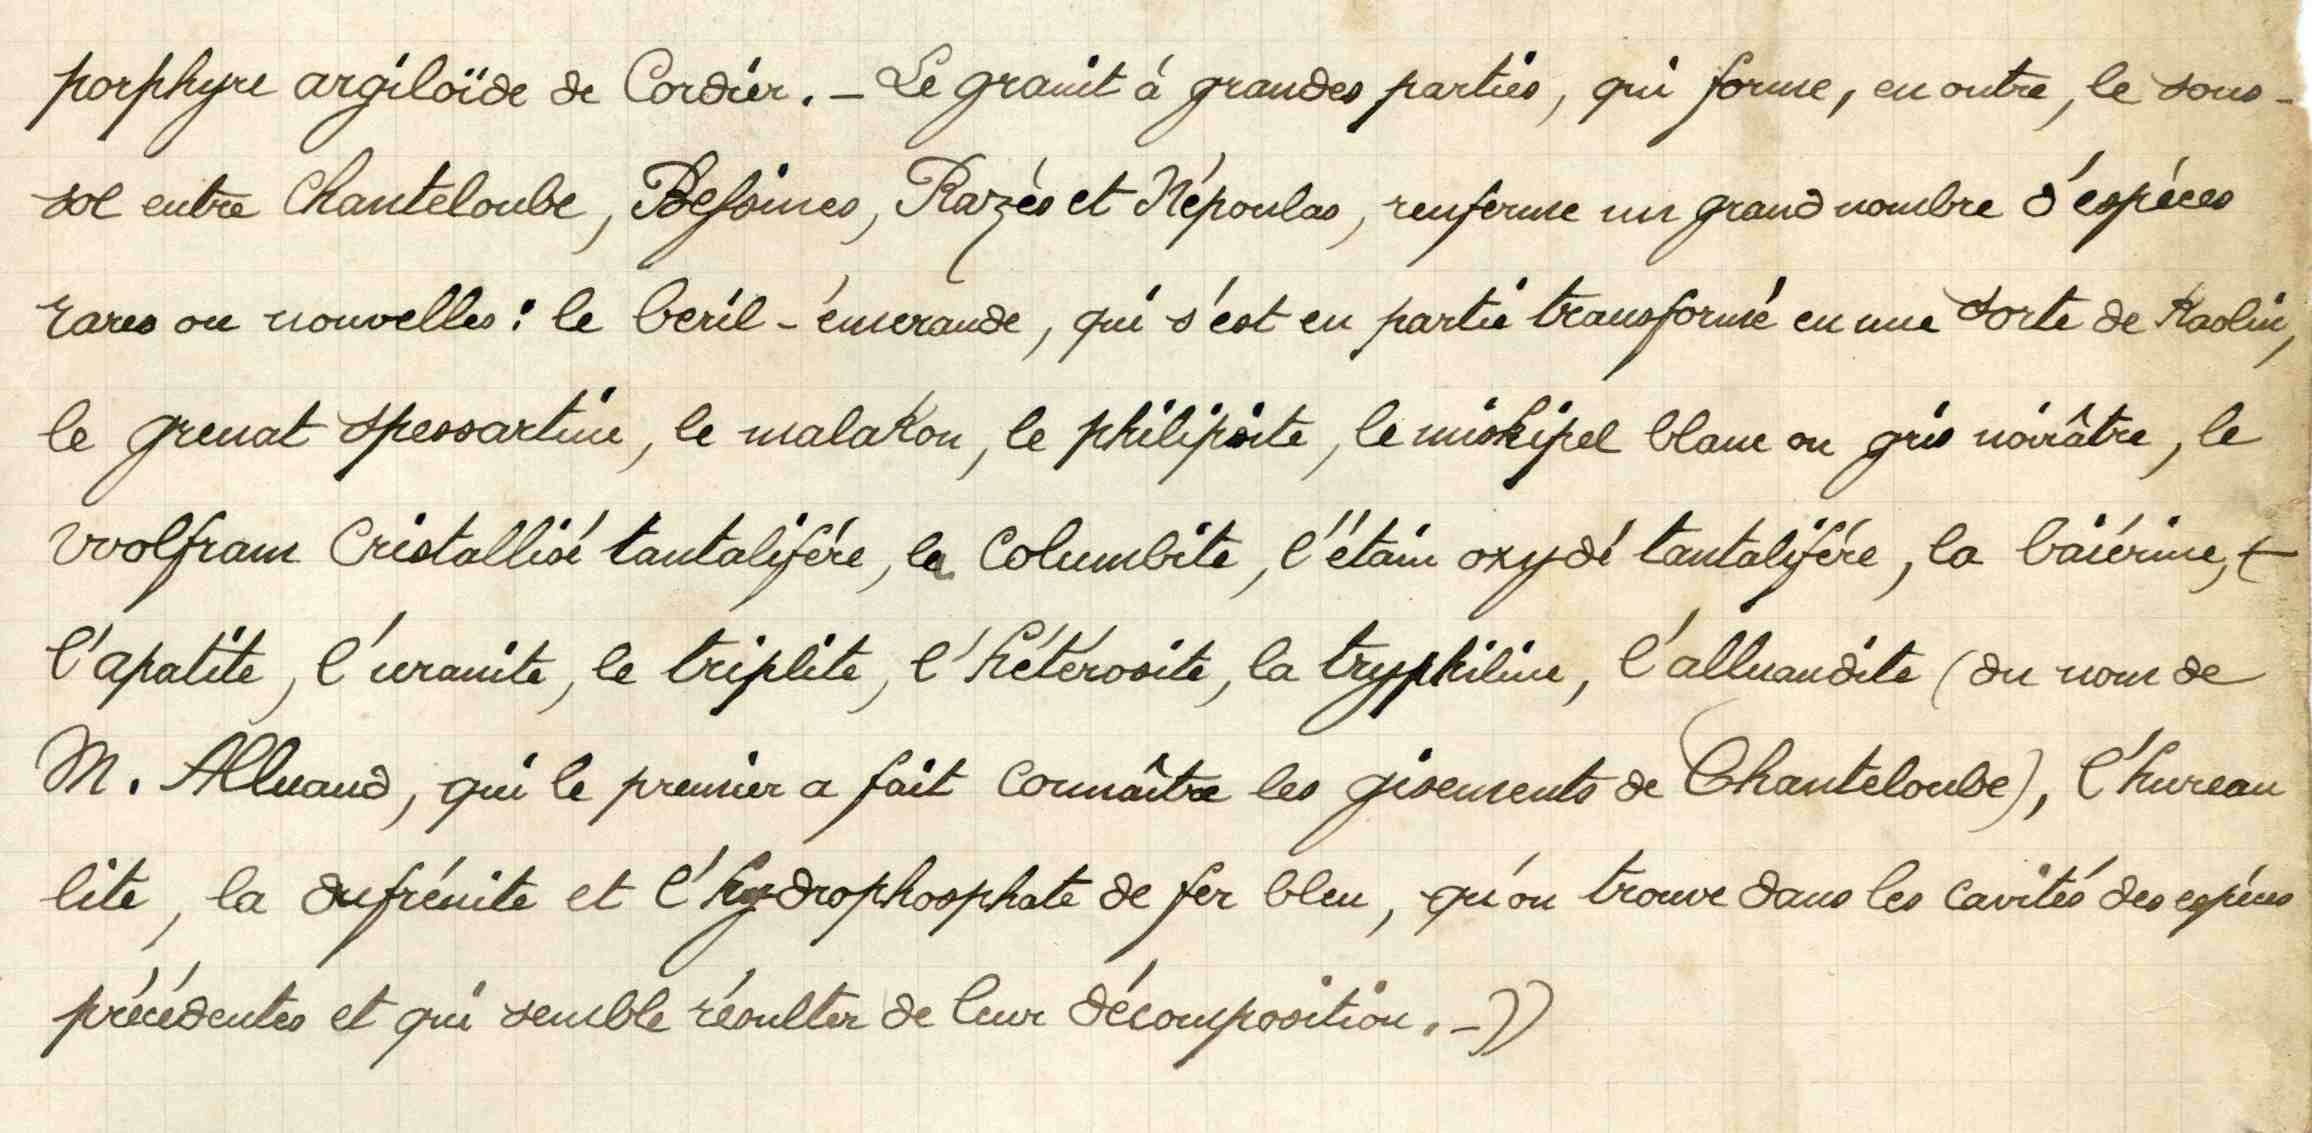 porphyre argiloïde de Cordier. – Le granit à grandes parties, qui forme, en outre, le sous-
sol entre Chanteloube, Bessines, Razès et Népoulas, renferme un grand nombre d'espèces
rares ou nouvelles : le beril-émeraude, qui s'est en partie transformé en une sorte de Kaolin,
le grenat spessartine, le malakon, le philipsite, le miskipel blanc ou gris noirâtre, le
wolfram cristallisé tantalifère, la columbite, l'étain oxydé tantalifère, la baiérine,
l'apatite, l'uranite, le triplite, l'hétérosite, la tryphiline, l'alluandite (du nom de
M. Alluaud, qui le premier a fait connaître les gisements de Chanteloube), l'hureau
lite, la dufrénite et l'hydrophosphate de fer bleu, qu'on trouve dans les cavités des espèces
précédentes et qui semble résulter de leur décomposition. – »